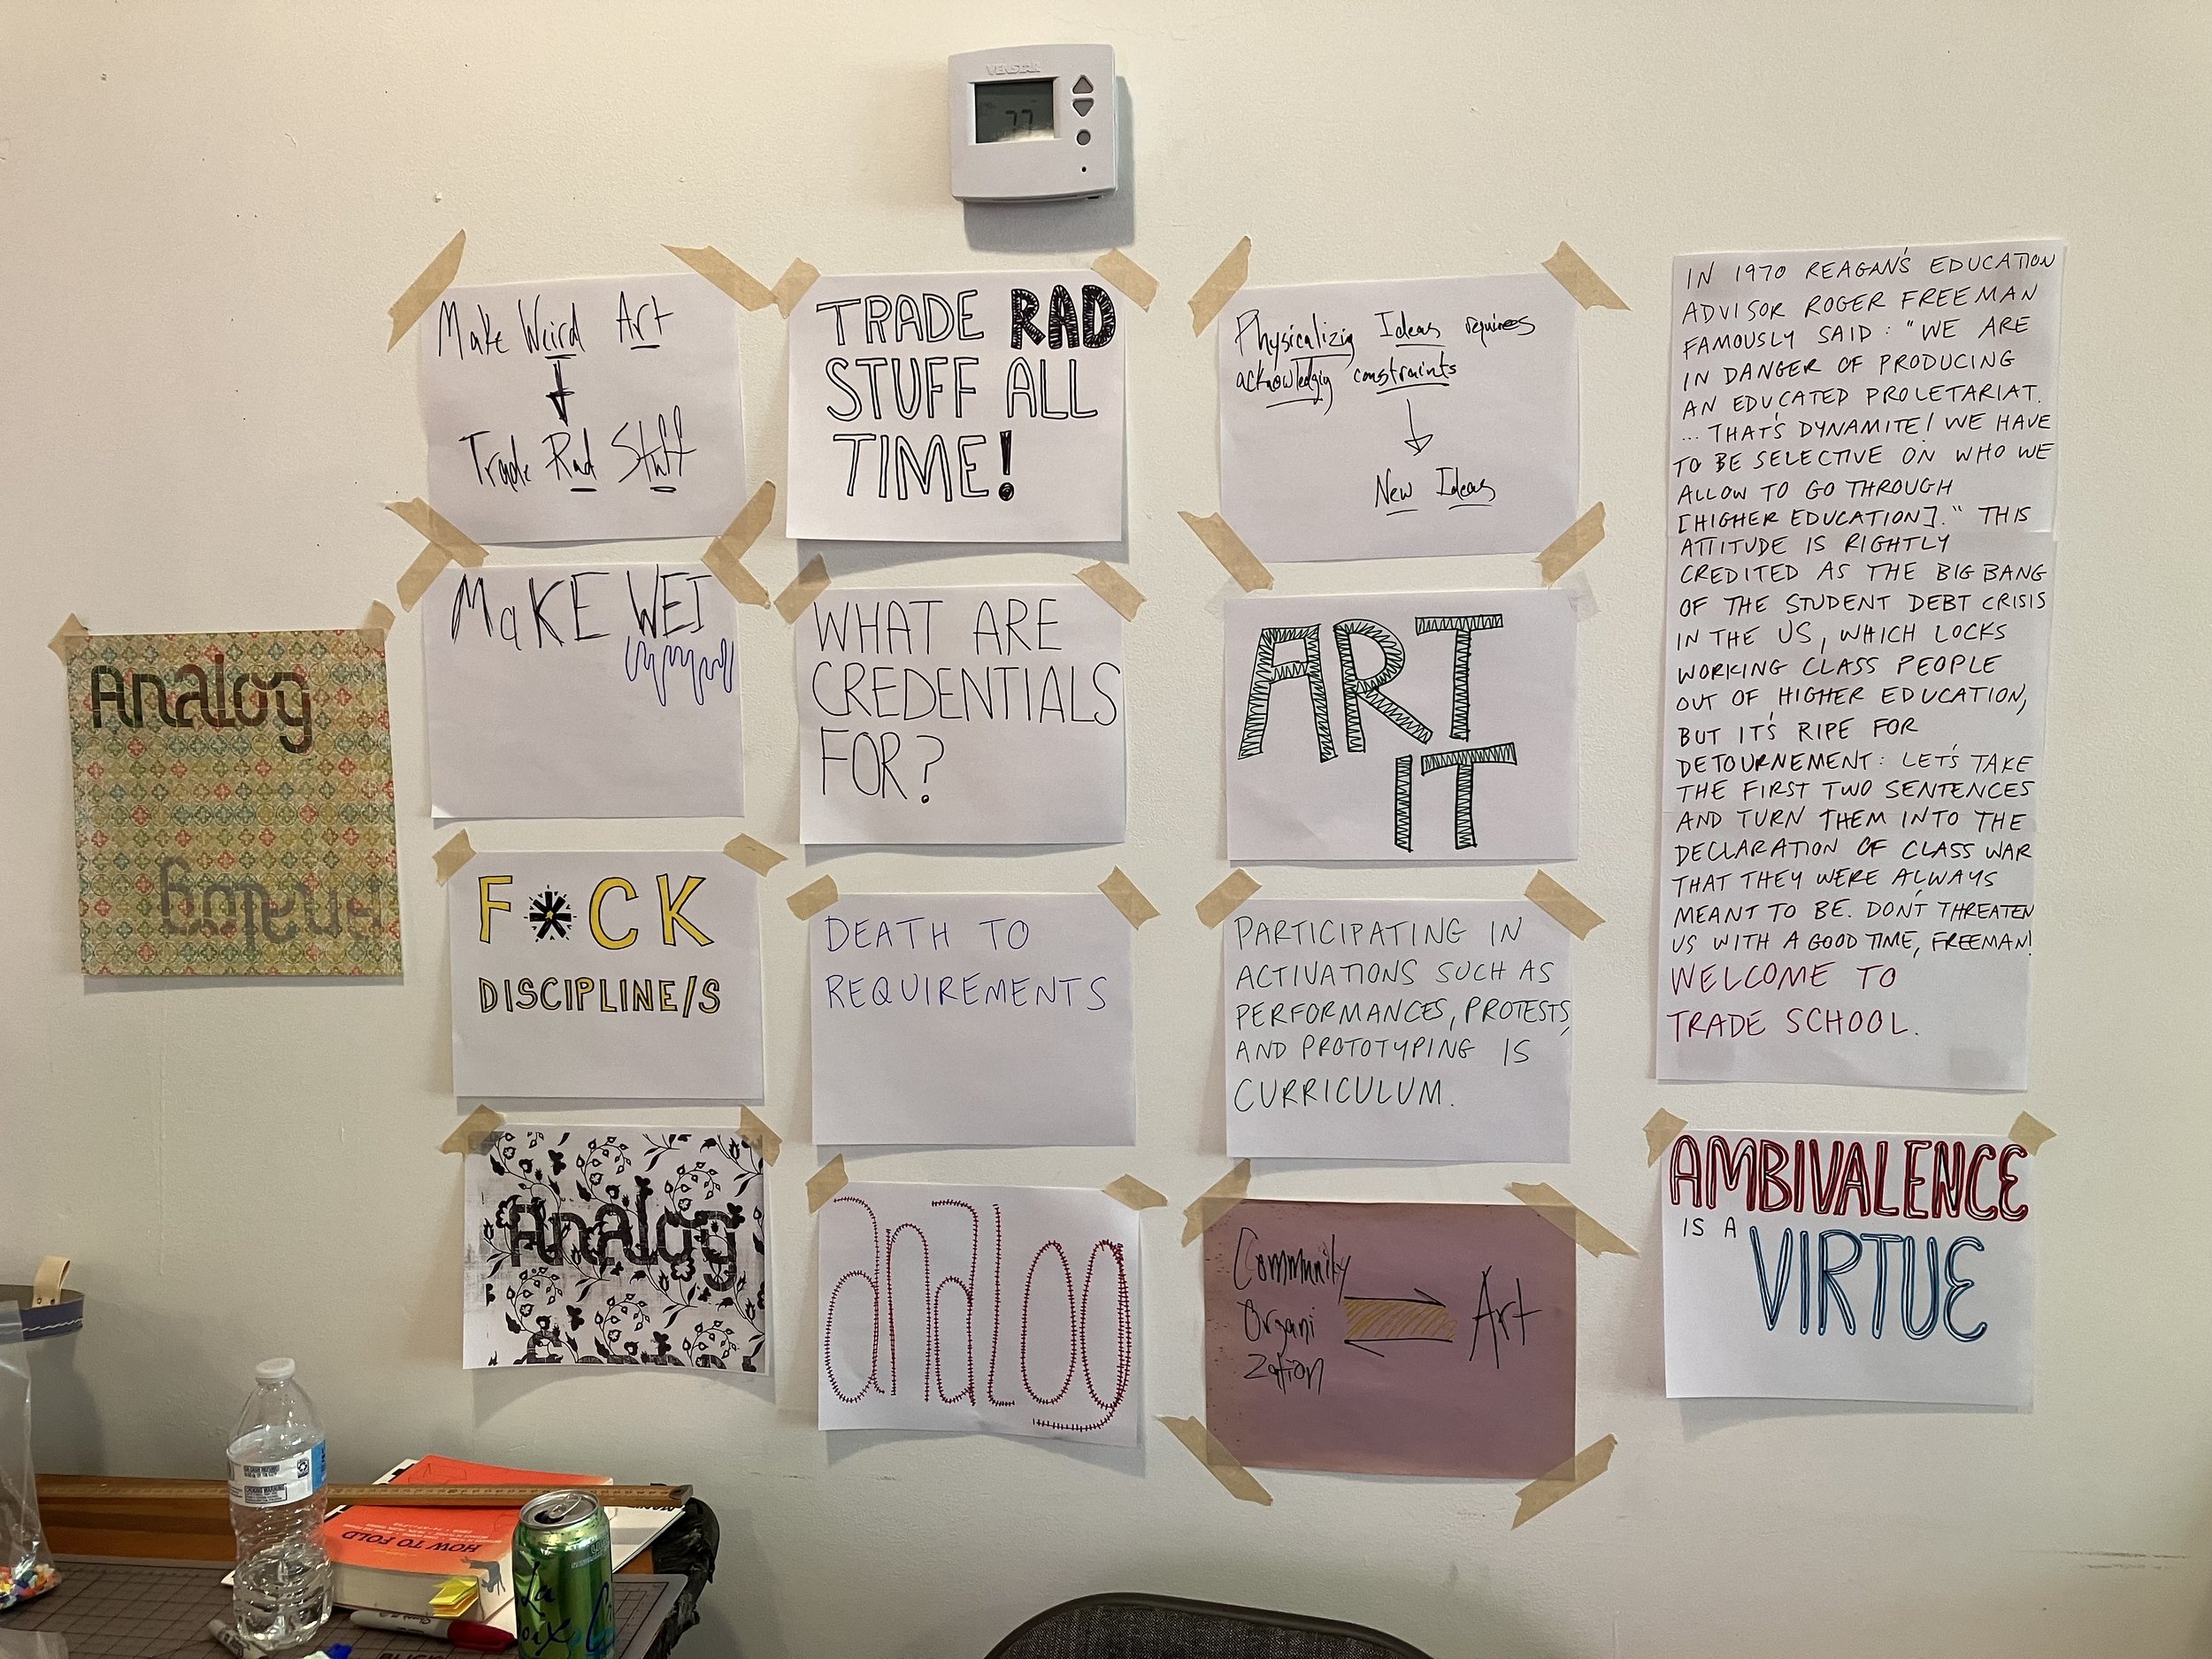 VENSTAR
77
Make Weird Art
Trade Rad Stuff
TRADE RAD
STUFF ALL
TIME!
Physicalizig Ideas requires
acknowledgig constraints
New Ideas
IN 1970 REAGAN'S EDUCATION
ADVISOR ROGER FREEMAN
FAMOUSLY SAID: "WE ARE
IN DANGER OF PRODUCING
AN EDUCATED PROLETARIAT.
... THAT'S DYNAMITE! WE HAVE
TO BE SELECTIVE ON WHO WE
ALLOW TO GO THROUGH
[HIGHER EDUCATION]." THIS
ATTITUDE IS RIGHTLY
CREDITED AS THE BIG BANG
OF THE STUDENT DEBT CRISIS
IN THE US, WHICH LOCKS
WORKING CLASS PEOPLE
OUT OF HIGHER EDUCATION,
BUT IT'S RIPE FOR
DETOURNEMENT: LET'S TAKE
THE FIRST TWO SENTENCES
AND TURN THEM INTO THE
DECLARATION OF CLASS WAR
THAT THEY WERE ALWAYS
MEANT TO BE. DON'T THREATEN
US WITH A GOOD TIME, FREEMAN!
WELCOME TO
TRADE SCHOOL.
MaKE WEI
WHAT ARE
CREDENTIALS
FOR?
ART
IT
Analog
Analog
F*CK
DISCIPLINE/S
DEATH TO
REQUIREMENTS
PARTICIPATING IN
ACTIVATIONS SUCH AS
PERFORMANCES, PROTESTS,
AND PROTOTYPING IS
CURRICULUM.
Analog
analog
Community
Organi
zation
Art
AMBIVALENCE
IS A
VIRTUE
HOW TO FOLD
La
Croix